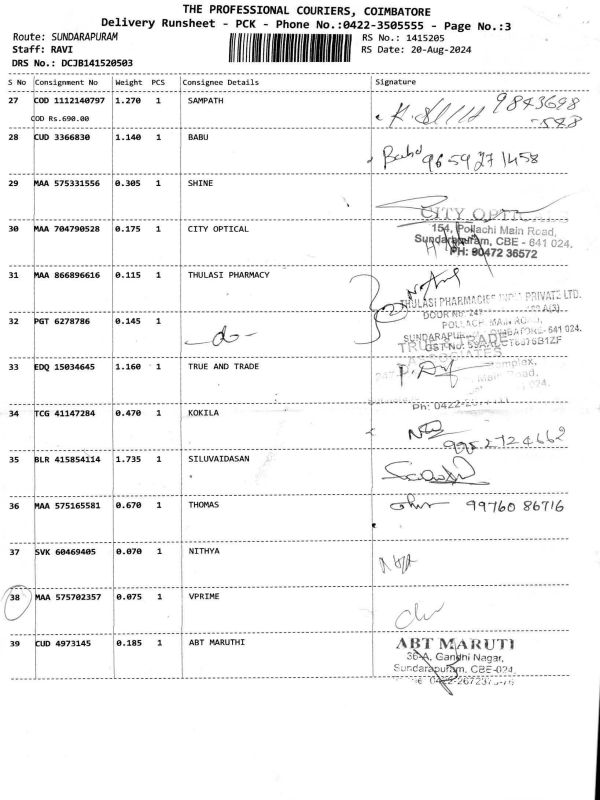 THE PROFESSIONAL COURIERS, COIMBATORE
Delivery Runsheet - PCK - Phone No.:0422-3505555 - Page No.:3
Route: SUNDARAPURAM RS No.: 1415205
Staff: RAVI RS Date: 20-Aug-2024
DRS No.: DCJB141520503
S No Consignment No Weight PCS Consignee Details Signature
27 COD 1112140797 1.270 1 SAMPATH
COD Rs.690.00
28 CUD 3366830 1.140 1 BABU Babu 9659271458
29 MAA 575331556 0.305 1 SHINE
30 MAA 704790528 0.175 1 CITY OPTICAL
CITY
154, Pollachi Main Road,
Sundarapuram, CBE - 641 024.
PH: 90472 36572
31 MAA 866896616 0.115 1 THULASI PHARMACY
THULASI PHARMACIES INDIA PRIVATE LTD.
32 PGT 6278786 0.145 1
-do-
DOOR No.
SUNDARAPURAM, COIMBATORE- 641 024.
33 EDQ 15034645 1.160 1 TRUE AND TRADE
Ph: 0422
34 TCG 41147284 0.470 1 KOKILA 9952724662
35 BLR 415854114 1.735 1 SILUVAIDASAN
36 MAA 575165581 0.670 1 THOMAS 99760 86716
37 SVK 60469405 0.070 1 NITHYA
38 MAA 575702357 0.075 1 VPRIME
39 CUD 4973145 0.185 1 ABT MARUTHI
ABT MARUTI
36-A, Gandhi Nagar,
Sundarapuram, CBE-024.